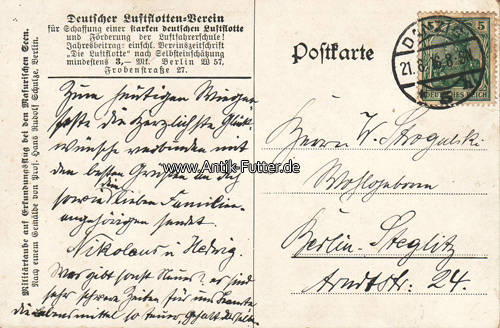 Deutscher Luftflotten-Verein
für Schaffung einer starken deutschen Luftflotte
und Förderung der Luftfahrerschule!
Jahresbeitrag: einschl. Vereinszeitschrift
"Die Luftflotte" nach Selbsteinschätzung
mindestens 3,— Mk. Berlin W 57,
Frobenstraße 27.
Militärtaube auf Erkundungsflug bei den Masurischen Seen.
Nach einem Gemälde von Prof. Hans Rudolf Schulze, Berlin.
Zum heutigen Wiegen-
feste die herzlichsten Glück-
wünsche verbunden mit
den besten Grüßen an dich
die
sowie lieben Familien-
angehörigen sendet
Nikolaus u Hedwig.
Was gibt sonst Neues? es sind
sehr schwere Zeiten für uns Beamte
die Lebensmittel so teuer, Gehalt dasselbe
Postkarte
DANZIG
21.8.
5
DEUTSCHES REICH
Herrn W. Strogulski
Wohlgeboren
Berlin-Steglitz
Arndtstr. 24.
www.Antik-Futter.de